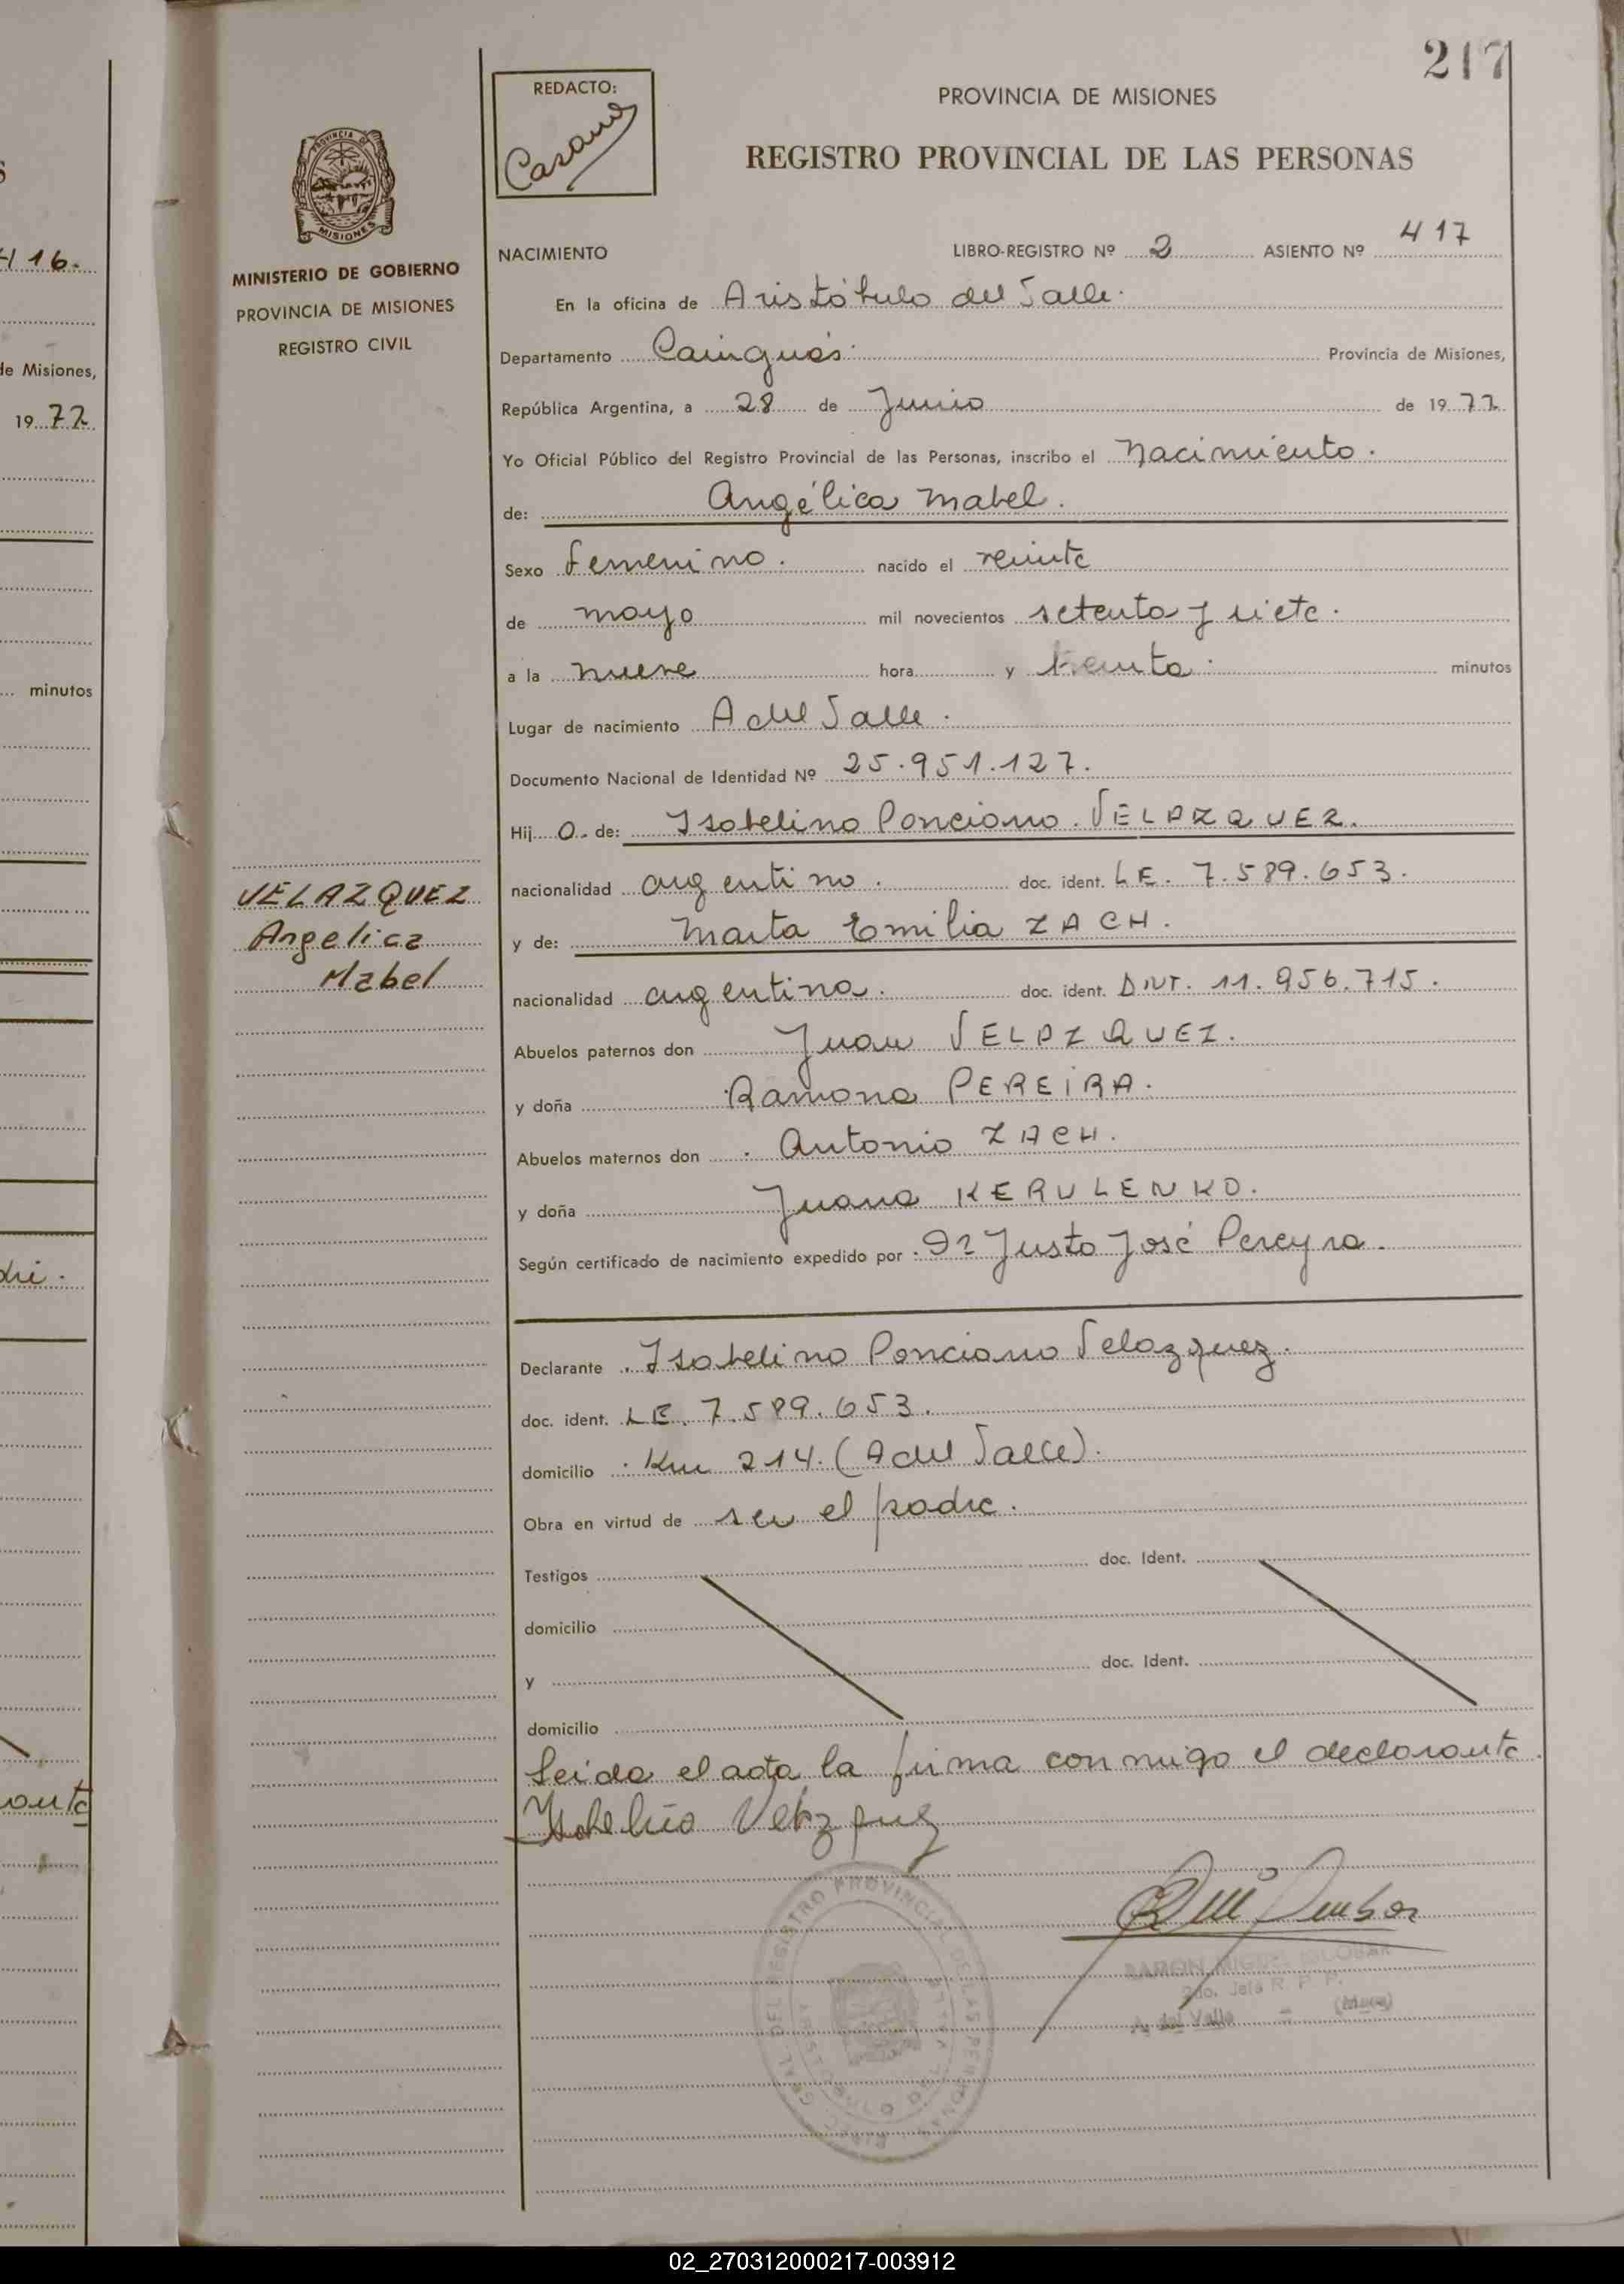 217
REDACTO:
Casano
PROVINCIA DE MISIONES
REGISTRO PROVINCIAL DE LAS PERSONAS
PROVINCIA DE
MISIONES
MINISTERIO DE GOBIERNO
PROVINCIA DE MISIONES
REGISTRO CIVIL
NACIMIENTO LIBRO-REGISTRO Nº 2 ASIENTO Nº 417
En la oficina de Aristóbulo del Valle.
Departamento Cainguás. Provincia de Misiones,
República Argentina, a 28 de Junio de 1977.
Yo Oficial Público del Registro Provincial de las Personas, inscribo el Nacimiento.
de: Angélica Mabel.
Sexo Femenino. nacido el veinte
de mayo mil novecientos setenta y siete.
a la nueve hora y treinta. minutos
Lugar de nacimiento A del Valle.
Documento Nacional de Identidad Nº 25.951.127.
Hij o. de: Isabelino Ponciano. VELAZQUEZ.
nacionalidad argentino. doc. ident. LE. 7.589.653.
y de: Marta Emilia ZACH.
nacionalidad argentina. doc. ident. DNI. 11.956.715.
Abuelos paternos don Juan VELAZQUEZ.
y doña Ramona PEREiRA.
Abuelos maternos don Antonio ZACH.
y doña Juana KERULENKO.
Según certificado de nacimiento expedido por Dr Justo José Pereyra.
VELAZQUEZ
Angelica
Mabel
Declarante Isabelino Ponciano Velazquez.
doc. ident. LE. 7.589.653.
domicilio Km 214. (A del Valle).
Obra en virtud de ser el padre.
Testigos doc. Ident.
domicilio
y doc. Ident.
domicilio
Leida el acta, la firma conmigo el declarante.
Isabelino Velazquez
A. del Valle - (Mnes)
416.
de Misiones,
1977.
minutos
02_270312000217-003912